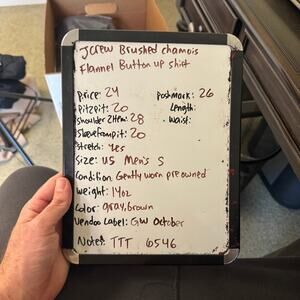 Jcrew Brushed chamois
Flannel Button up shirt
Price: 24
Poshmark: 26
Pit2pit: 20
Length:
Shoulder2Hem: 28
Waist:
Sleevefrompit: 20
Stretch: Yes
Size: US Men's S
Condition: Gently worn preowned
Weight: 14oz
Color: gray, brown
Vendoo Label: GW October
Notes: TTT 6546